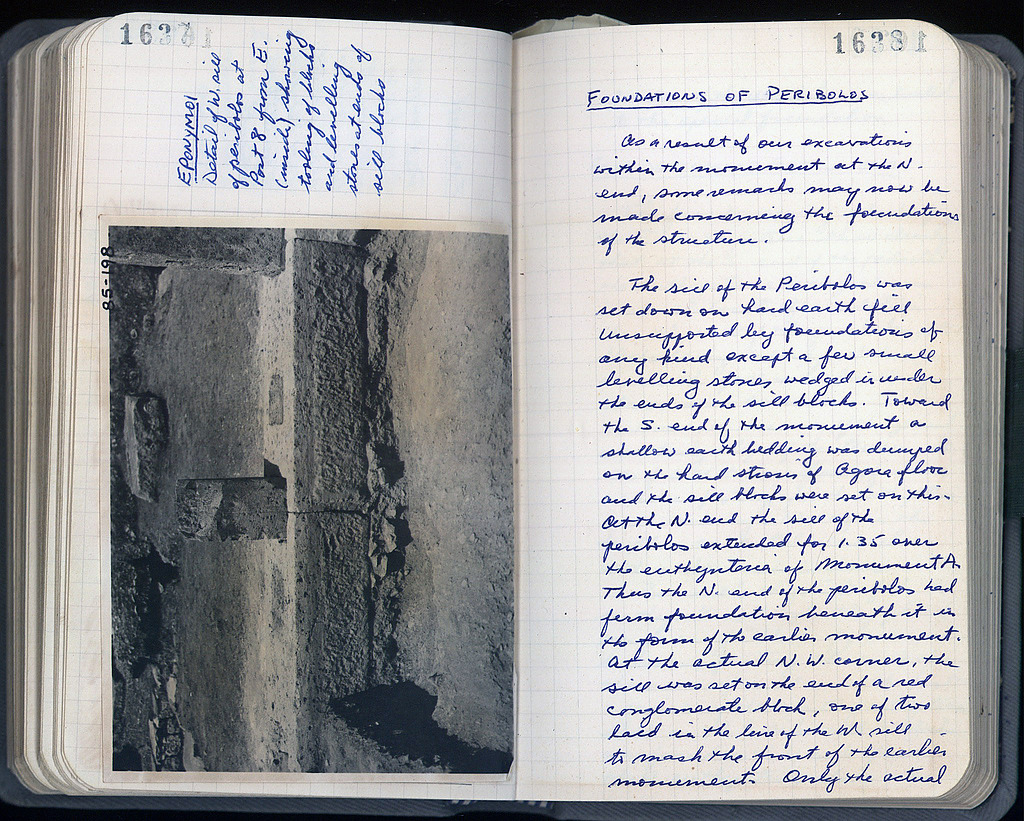 1637
EPONYMOI
Detail of W. sill
of peribolos at
Post 8 from E.
(inside) showing
tooling of blocks
and levelling
stones at ends of
sill blocks
85-198
16381
FOUNDATIONS OF PERIBOLOS
As a result of our excavations
within the monument at the N.
end, some remarks may now be
made concerning the foundations
of the structure.
The sill of the Peribolos was
set down on hard earth fill
unsupported by foundations of
any kind except a few small
levelling stones wedged in under
the ends of the sill blocks. Toward
the S. end of the monument a
shallow earth bedding was dumped
on the hard strosis of Agora floor
and the sill blocks were set on this.
At the N. end the sill of the
peribolos extended for 1.35 over
the euthynteria of Monument A.
Thus the N. end of the peribolos had
firm foundation beneath it in
the form of the earlier monument.
At the actual N.W. corner, the
sill was set on the end of a red
conglomerate block, one of two
laid in the line of the W. sill
to mask the front of the earlier
monument. Only the actual